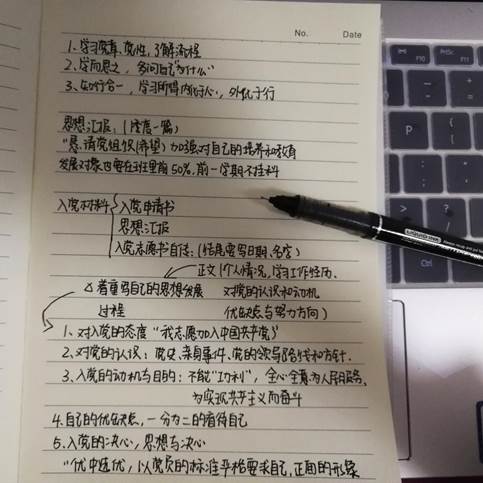 No.    Date
1、学习党章、党性，了解流程
2、学而思之，多问自己"为什么"
3、知行合一，学习所得内化于心，外化于行
思想汇报：(一季度一篇)
"恳请党组织(希望) 加强对自己的培养和教育
发展对象也要在班里前50%，前一学期不挂科
入党材料 入党申请书
思想汇报
入党志愿书自传：(结尾要写日期、名字)
正文 1个人情况，学习工作经历.
△着重写自己的思想发展 对党的认识和动机
过程 优缺点与努力方向)
1、对入党的态度 "我志愿加入中国共产党"
2、对党的认识：党史、亲身事件、党的领导路线和方针.
3、入党的动机与目的：不能"功利"，全心全意为人民服务，
为实现共产主义而奋斗
4.自己的优缺点，一分为二的看待自己
5、入党的决心，思想与决心
"优中选优，以党员的标准严格要求自己，正面的形象
LIQUID INK